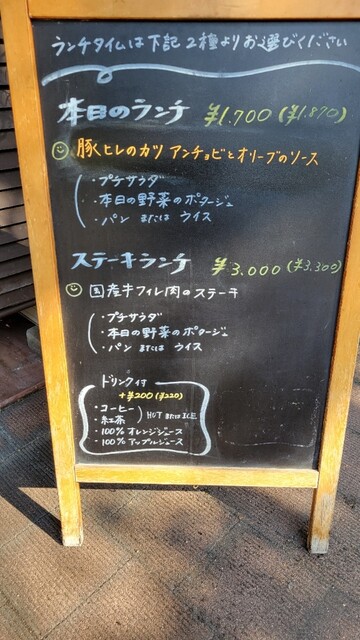 ランチタイムは下記2種よりお選びください
本日のランチ ¥1,700 (¥1,870)
豚ヒレのカツ アンチョビとオリーブのソース
・プチサラダ
・本日の野菜のポタージュ
・パン または ライス
ステーキランチ ¥3,000 (¥3,300)
国産牛フィレ肉のステーキ
・プチサラダ
・本日の野菜のポタージュ
・パン または ライス
ドリンク付
+¥200 (¥220)
・コーヒー
・紅茶
HOT または ICE
・100% オレンジジュース
・100% アップルジュース